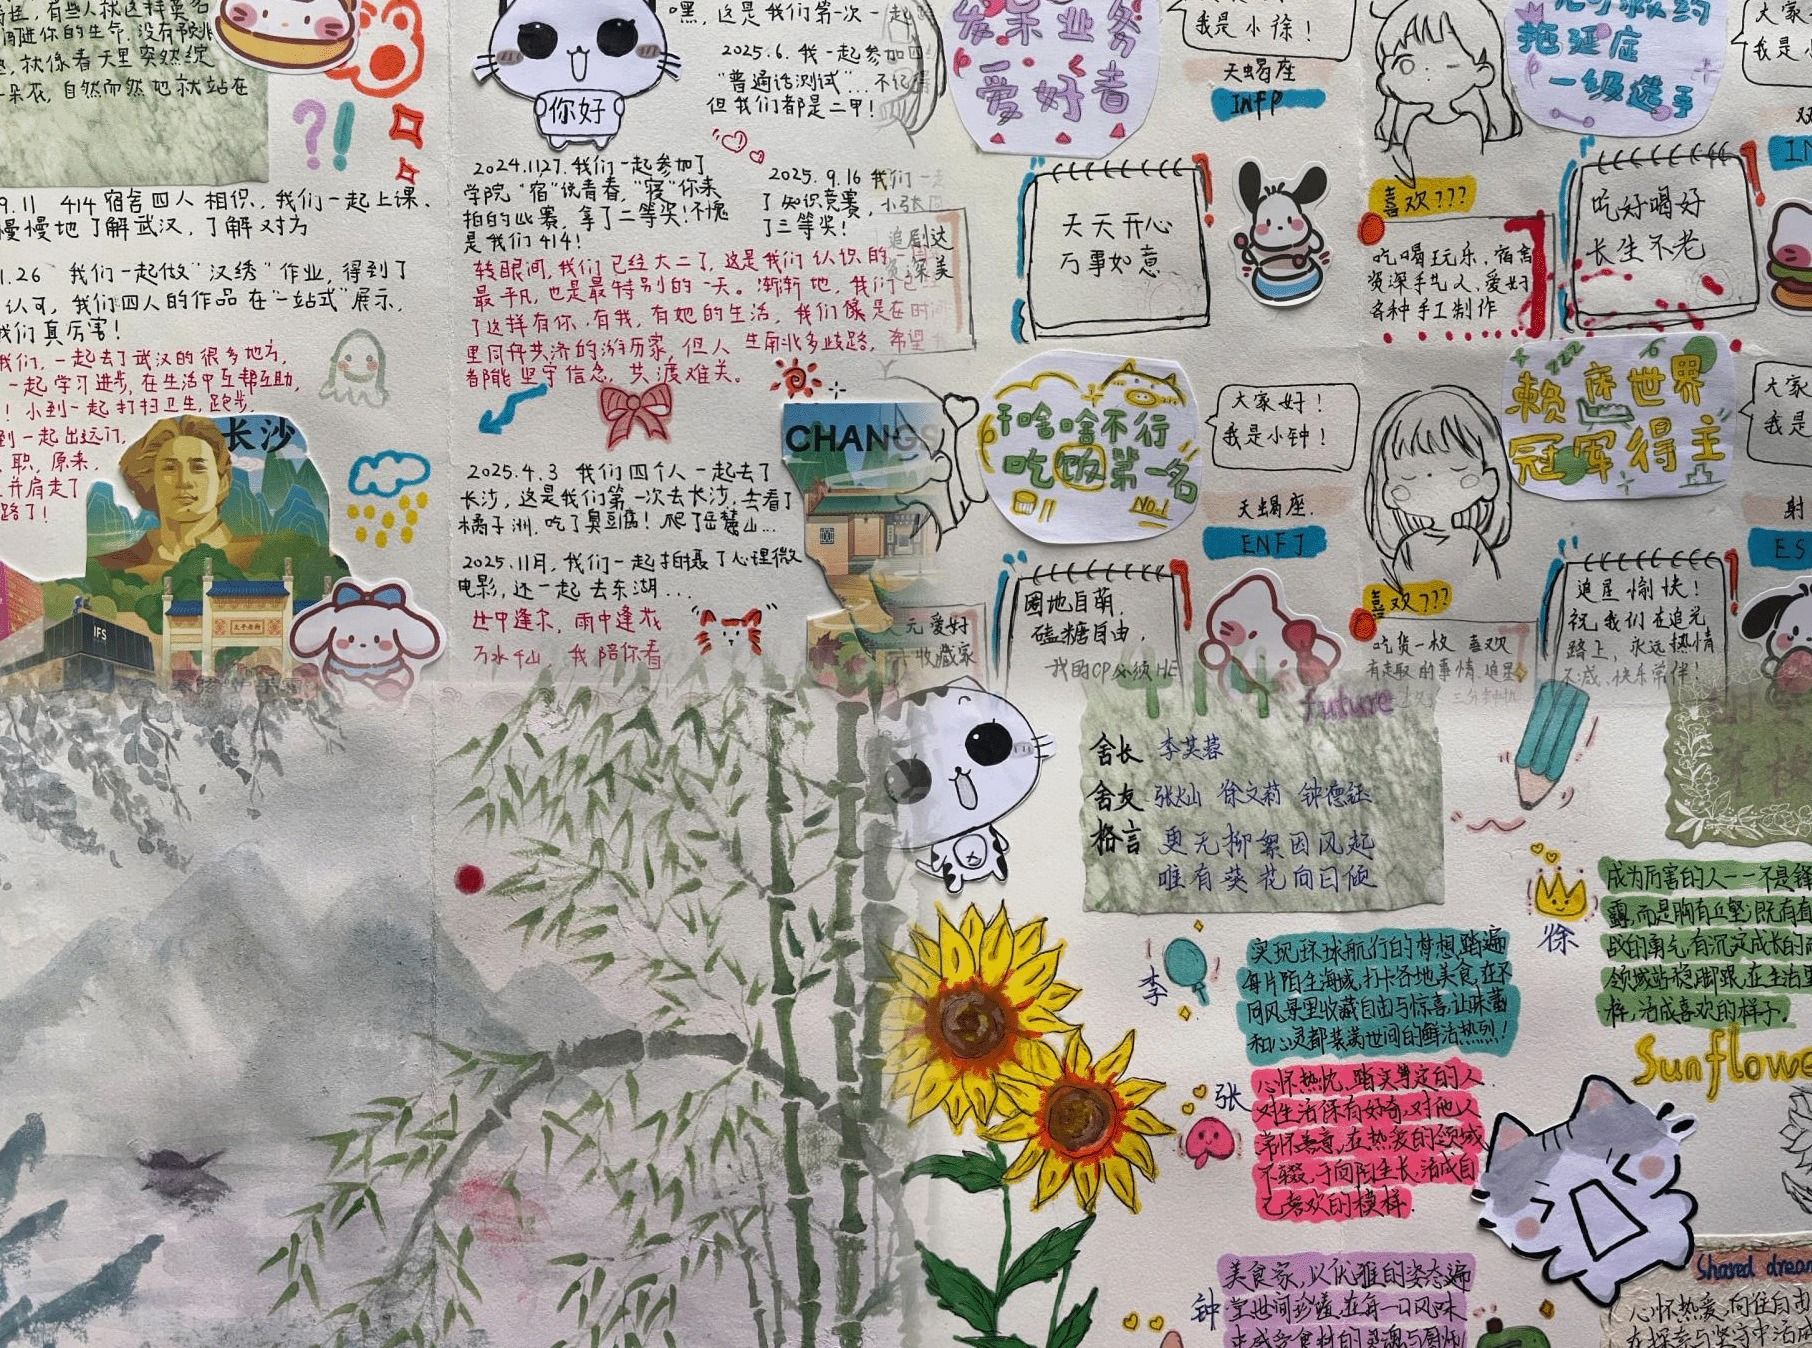 有些人就这样莫名
闯进你的生命,没有预兆
就像春天里突然绽
一朵花,自然而然她就站在
9.11 414宿舍四人相识,我们一起上课、
慢慢地了解武汉,了解对方
1.26 我们一起做“汉绣”作业,得到了
认可,我们四人的作品在“一站式”展示,
我们真厉害!
我们,一起去了武汉的很多地方,
一起学习进步,在生活中互帮互助,
!小到一起打扫卫生,跑步,
到一起出远门,
职,原来,
并肩走了
路了!
长沙
IFS
你好
嘿,这是我们第一次一起
2025.6.我一起参加四
“普通话测试”...不记得
但我们都是二甲!
2024.11.27.我们一起参加了
学院“宿”说青春,“寝”你来
拍的比赛,拿了二等奖!不愧
是我们414!
2025.9.16 我们一
了知识竞赛,
了三等奖!
转眼间,我们已经大二了,这是我们认识的一
最平凡,也是最特别的一天。渐渐地,我们已
了这样有你,有我,有她的生活,我们像是在时间
里同舟共济的游历家,但人生南北多歧路,希望
都能坚守信念,共渡难关。
CHANGS
2025.4.3 我们四个人一起去了
长沙,这是我们第一次去长沙,去看了
橘子洲,吃了臭豆腐!爬了岳麓山...
2025.11月,我们一起拍摄了心理微
电影,还一起去东湖...
世中逢尔,雨中逢花
万水千山,我陪你看
发呆业务
爱好者
我是小徐!
天蝎座
INFP
追剧达
资深美
天天开心
万事如意
拖延症
一级选手
喜欢???
吃喝玩乐,宿舍
资深手艺人,爱好
各种手工制作
大家
我是小
IN
吃好喝好
长生不老
干啥啥不行
吃饭第一名
NO.1
大家好!
我是小钟!
天蝎座.
ENFJ
元爱好
收藏家
圈地自萌,
磕糖自由,
我的CP必须HE
赖床世界
冠军得主
喜欢???
吃货一枚 喜欢
有趣的事情,追星
大家
我是
射
ES
追星愉快!
祝我们在追光
路上,永远热情
不减,快乐常伴!
414
future
舍长 李芙蓉
舍友 张灿 徐文莉 钟德钰
格言 更无柳絮因风起
唯有葵花向日倾
李
实现环球航行的梦想,踏遍
每片陌生海域,打卡各地美食,在不
同风景里收藏自由与惊喜,让味蕾
和心灵都装满世间的鲜活热烈!
张
心怀热忱,踏实笃定的人
对生活保有好奇,对他人
常怀善意,在热爱的领域
不辍,于向阳生长,活成自
己喜欢的模样.
徐
成为厉害的人——不是锋
露,而是胸有丘壑;既有直
战的勇气,有沉淀成长的
领域站稳脚跟,在生活里
样,活成喜欢的样子.
Sunflowe
钟
美食家,以优雅的姿态遍
尝世间珍馐,在每一口风味
中感受食材的灵魂与
Shared dream
心怀热爱,向往自由
在探索与坚守中活成